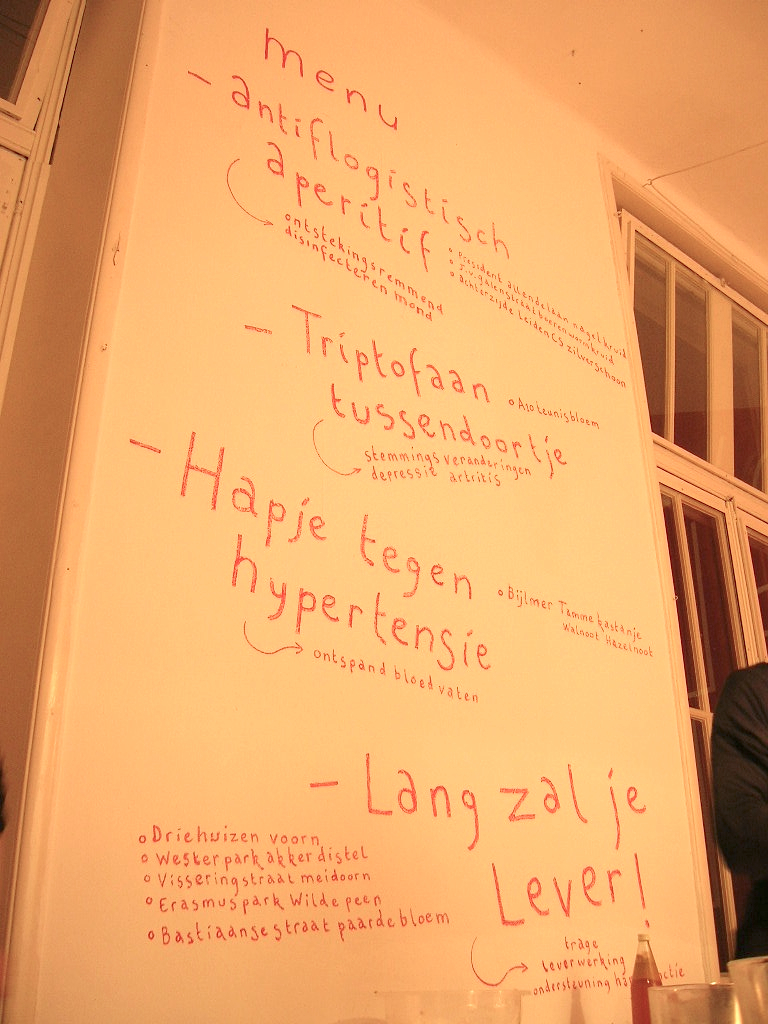 menu
- antiflogistisch
aperitif
ontstekingsremmend
disinfecteren mond
o President allendelaan nagelkruid
o J.v. galenstraat boerenwormkruid
o achterzijde Leiden CS zilverschoon
- Triptofaan
tussendoortje
o A10 teunisbloem
stemmingsveranderingen
depressie artritis
- Hapje tegen
hypertensie
o Bijlmer Tamme kastanje
Walnoot Hazelnoot
ontspand bloedvaten
- Lang zal je
Lever!
o Driehuizen voorn
o Westerpark akkerdistel
o Visseringstraat meidoorn
o Erasmuspark Wilde peen
o Bastiaansestraat paardebloem
trage
leverwerking
ondersteuning